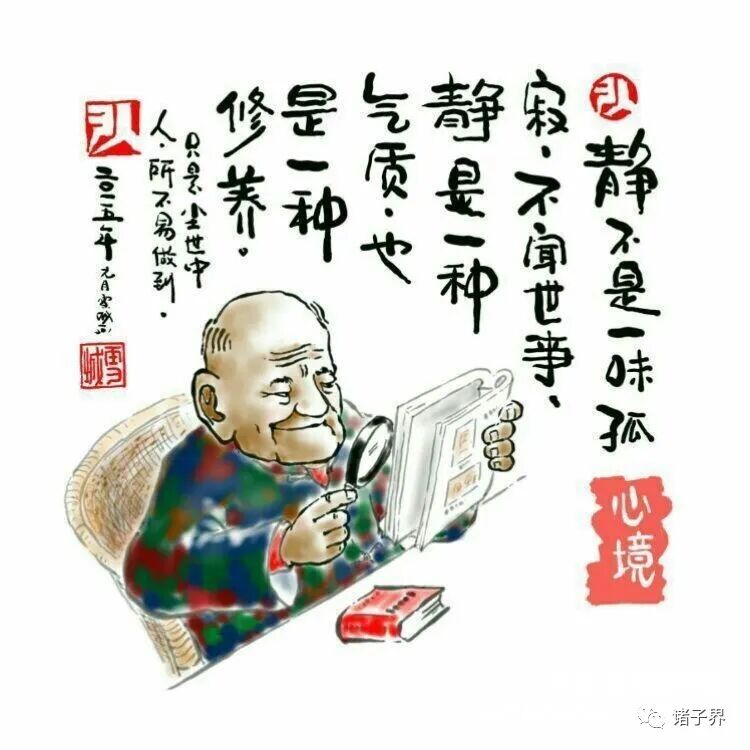 静不是一味孤
寂、不闻世事、
静是一种
气质·也
是一种
修养。
只是尘世中
人·所不易做到·
二〇一五年元月
雪城
心境
诸子界